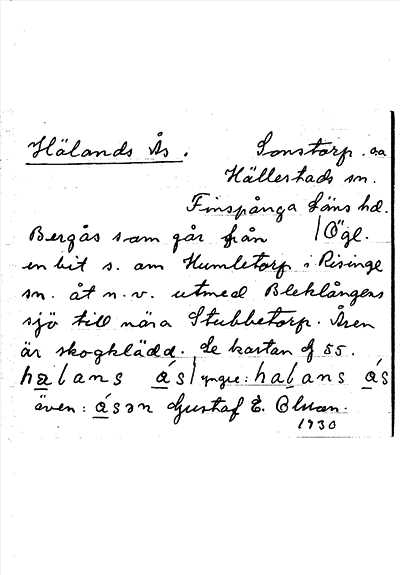 Hälands Ås. Sonstorp. aa
Hällestads sn.
Finspånga läns hd.
Bergås som går från | Ögl.
en bit s. om Humletorp i Risinge
sn. åt n.v. utmed Bleklångens
sjö till nära Stubbetorp. Åsen
är skogklädd. Se kartan f 55.
halans ás | yngre: halans ás
även: ásən Gustaf E. Olsson.
1930